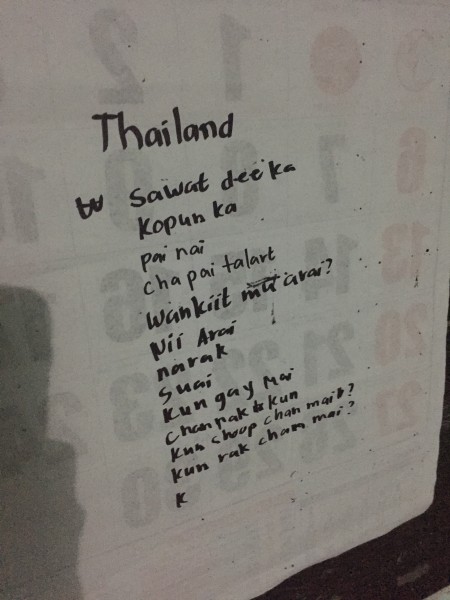 Thailand
Sawat dee ka
Kopun ka
pai nai
cha pai talart
Wankiit arai?
Nii Arai
narak
Suai
Kun gay Mai
Chan rak kun
Kun choop chan mai?
Kun rak cham mai?
K